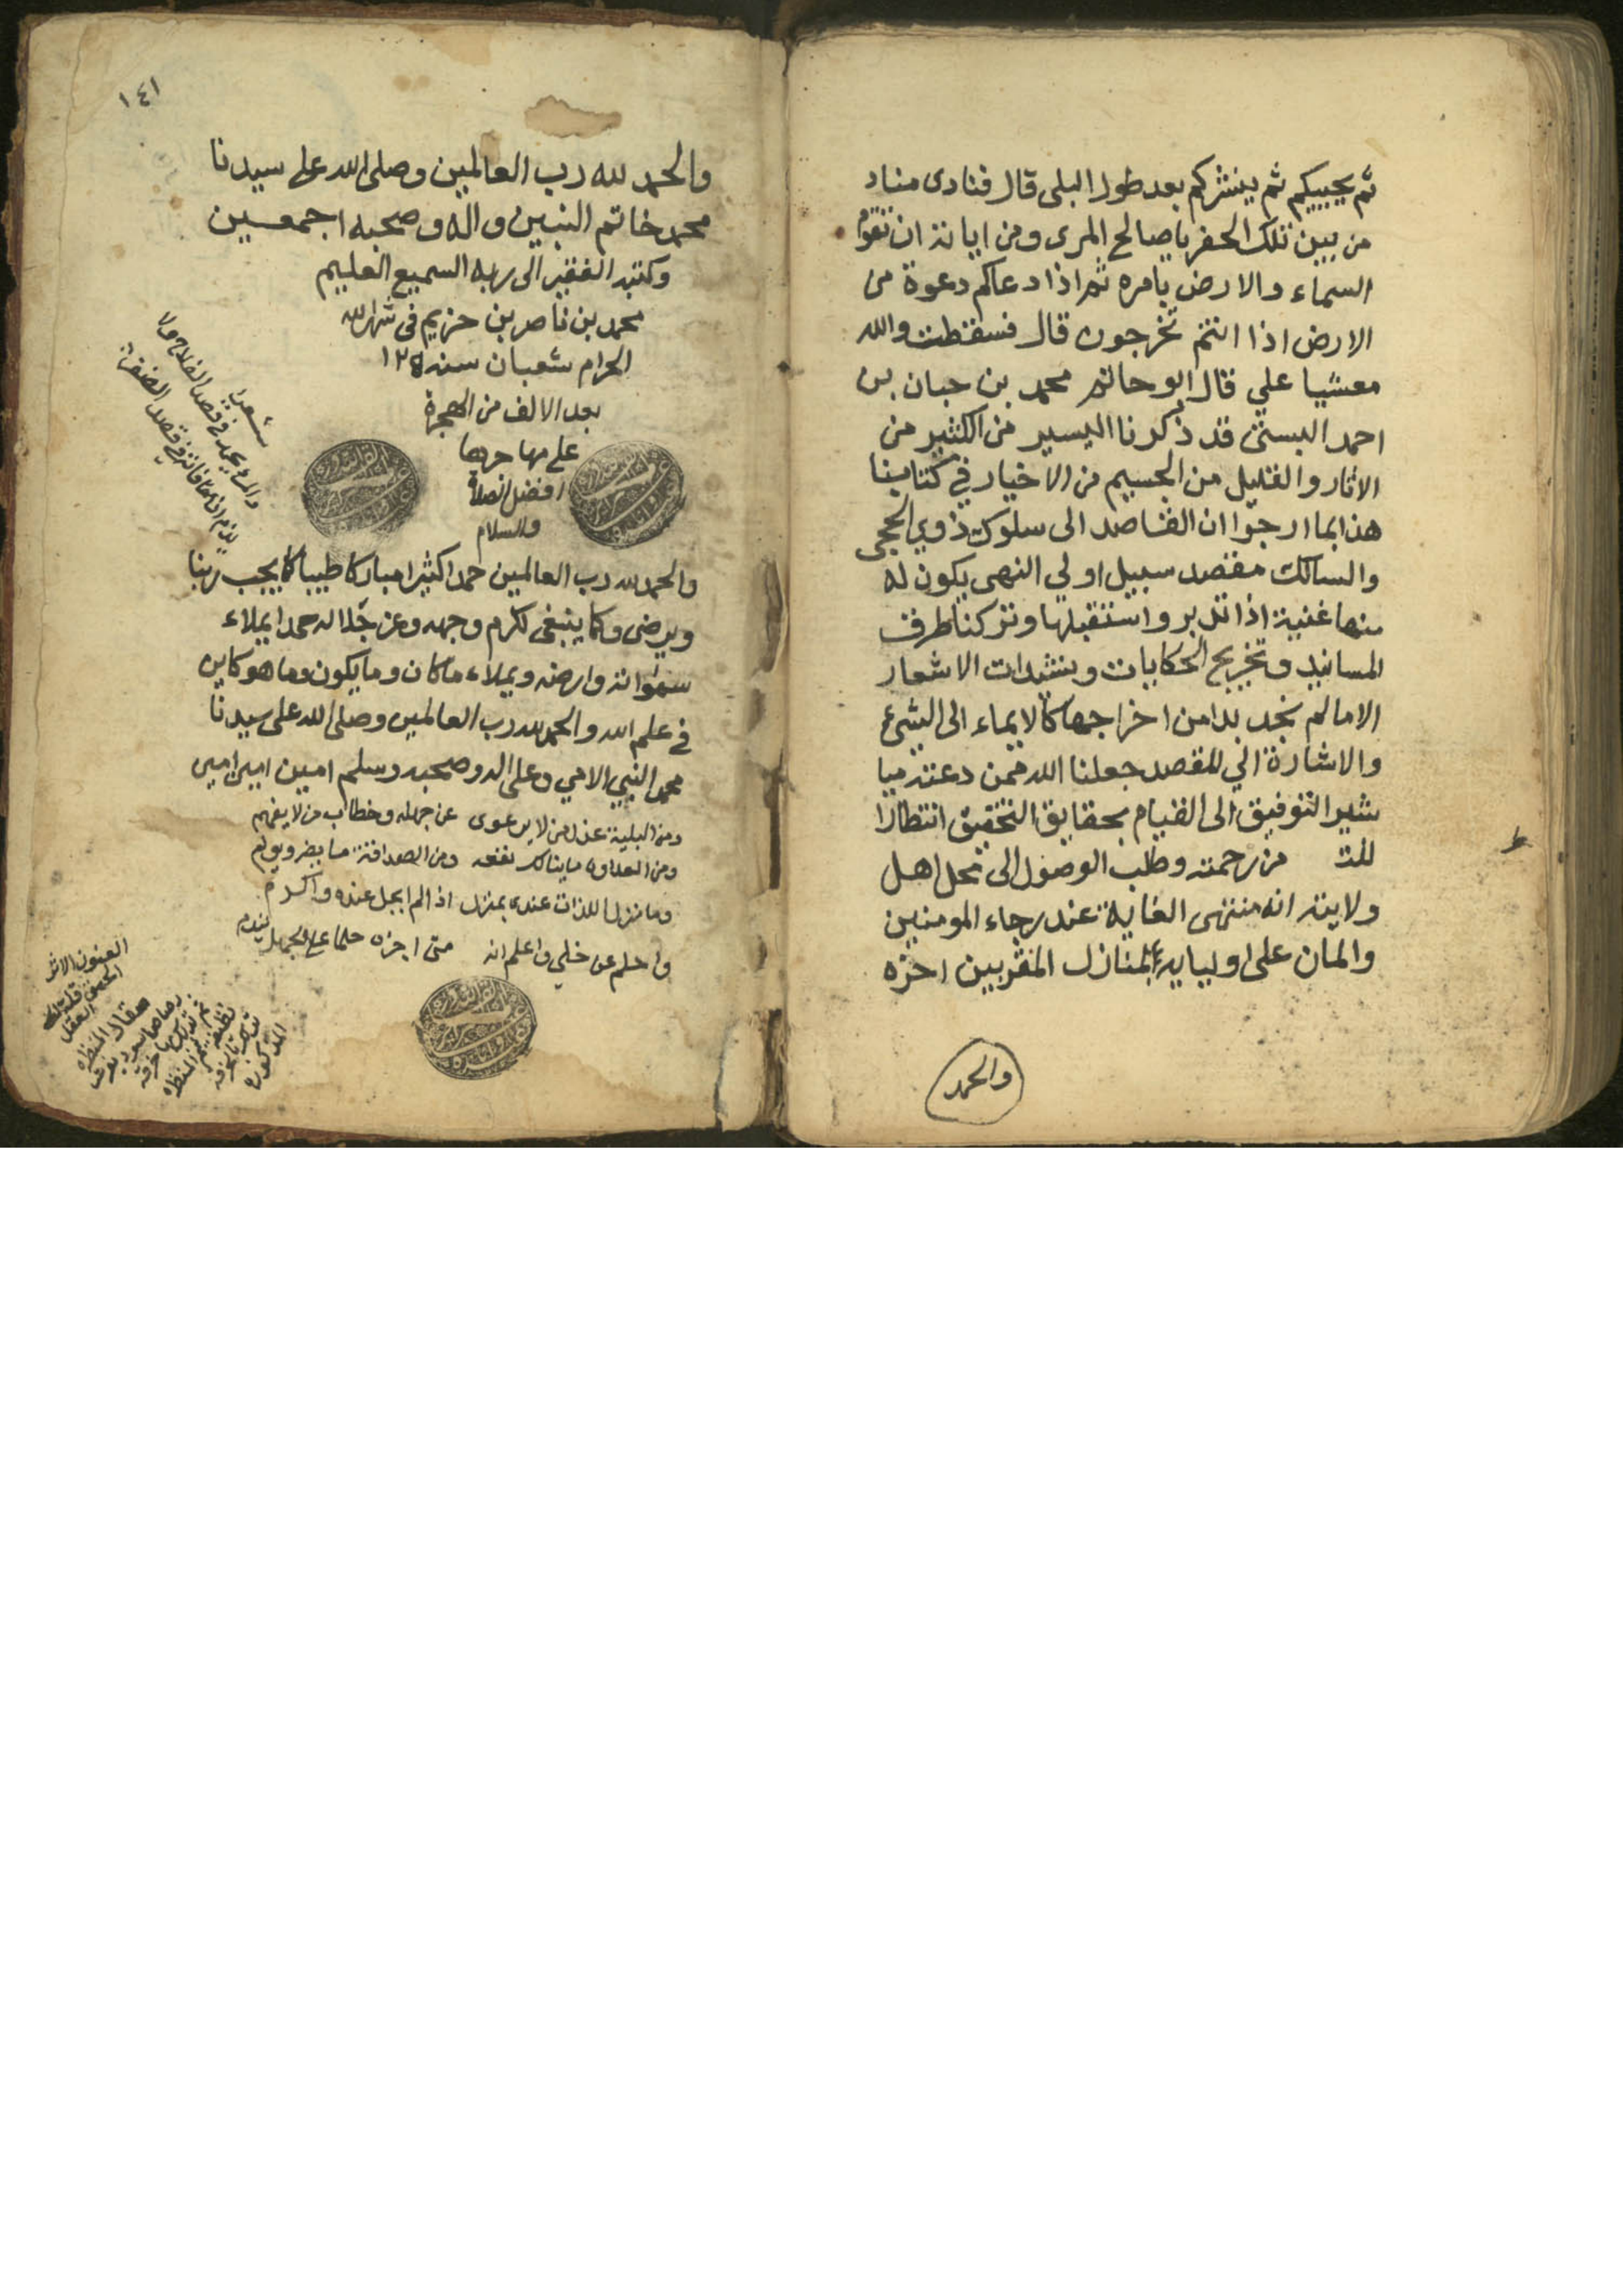 ثم يحييكم ثم ينشركم بعد طول البلى قال فنادى مناد
من بين تلك الحفر يا صالح المري ومن اياته ان تقوم
السماء والارض بامره ثم اذا دعاكم دعوة من
الارض اذا انتم تخرجون قال فسقطت والله
مغشيا علي قال ابو حاتم محمد بن حبان بن
احمد البستي قد ذكرنا اليسير من الكثير من
الاثار والقليل من الجسيم من الاخبار في كتابنا
هذا بما ارجوا ان القاصد الى سلوك ذوي الحجى
والسالك مقصد سبيل اولي النهى يكون له
منها غنية اذا تدبر واستقبلها وتركنا طرف
المسانيد وتخريج الحكايات ومنشدات الاشعار
الا ما لم نجد بدا من اخراجها كالايماء الى الشيء
والاشارة الي للقصد جعلنا الله ممن دعته ميا
شير التوفيق الى القيام بحقايق التحقيق انتظارا
للت من رحمته وطلب الوصول الى محل اهل
ولايته انه منتهى الغاية عند رجاء المومنين
والمان على اوليايه بمنازل المقربين اخره
والحمد
١٤١
والحمد لله رب العالمين وصلى الله على سيدنا
محمد خاتم النبين واله وصحبه اجمعين
وكتبه الفقير الى ربه السميع العليم
محمد بن ناصر بن حزيم في شهر الله
الحرام شعبان سنه
بعد الالف من الهجرة
على مهاجرها
افضل الصلاة
والسلام
والحمد لله رب العالمين حمدا كثيرا مباركا طيبا كما يحب ربنا
ويرضى وكما ينبغي لكرم وجهه وعز جلاله حمدا يملاء
سمواته وارضه ويملاء ما كان وما يكون وما هو كاين
في علم الله والحمد لله رب العالمين وصلى الله على سيدنا
محمد النبي الامي وعلى اله وصحبه وسلم امين امين امين
ومن البلية عذل من لا يرعوى عن جهله وخطاب من لا يفهم
ومن العداوة ما ينالك نفعه ومن الصداقة ما يضر ويولم
وما منزل اللذات عندى بمنزل اذا لم ابجل عنده واكرم
واحلم عن خلي واعلم انه متى اجزه حلما على الجهل يندم